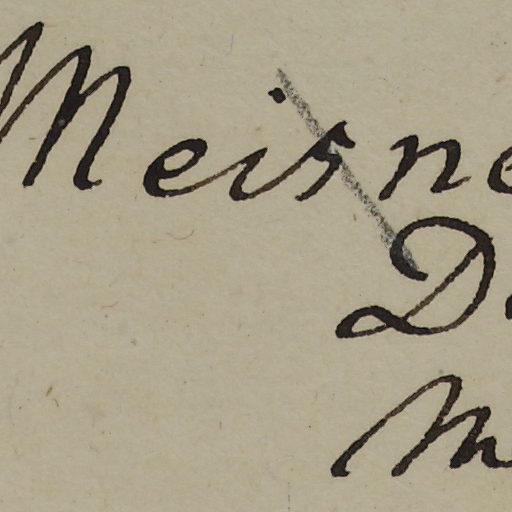 Meisne
D
M